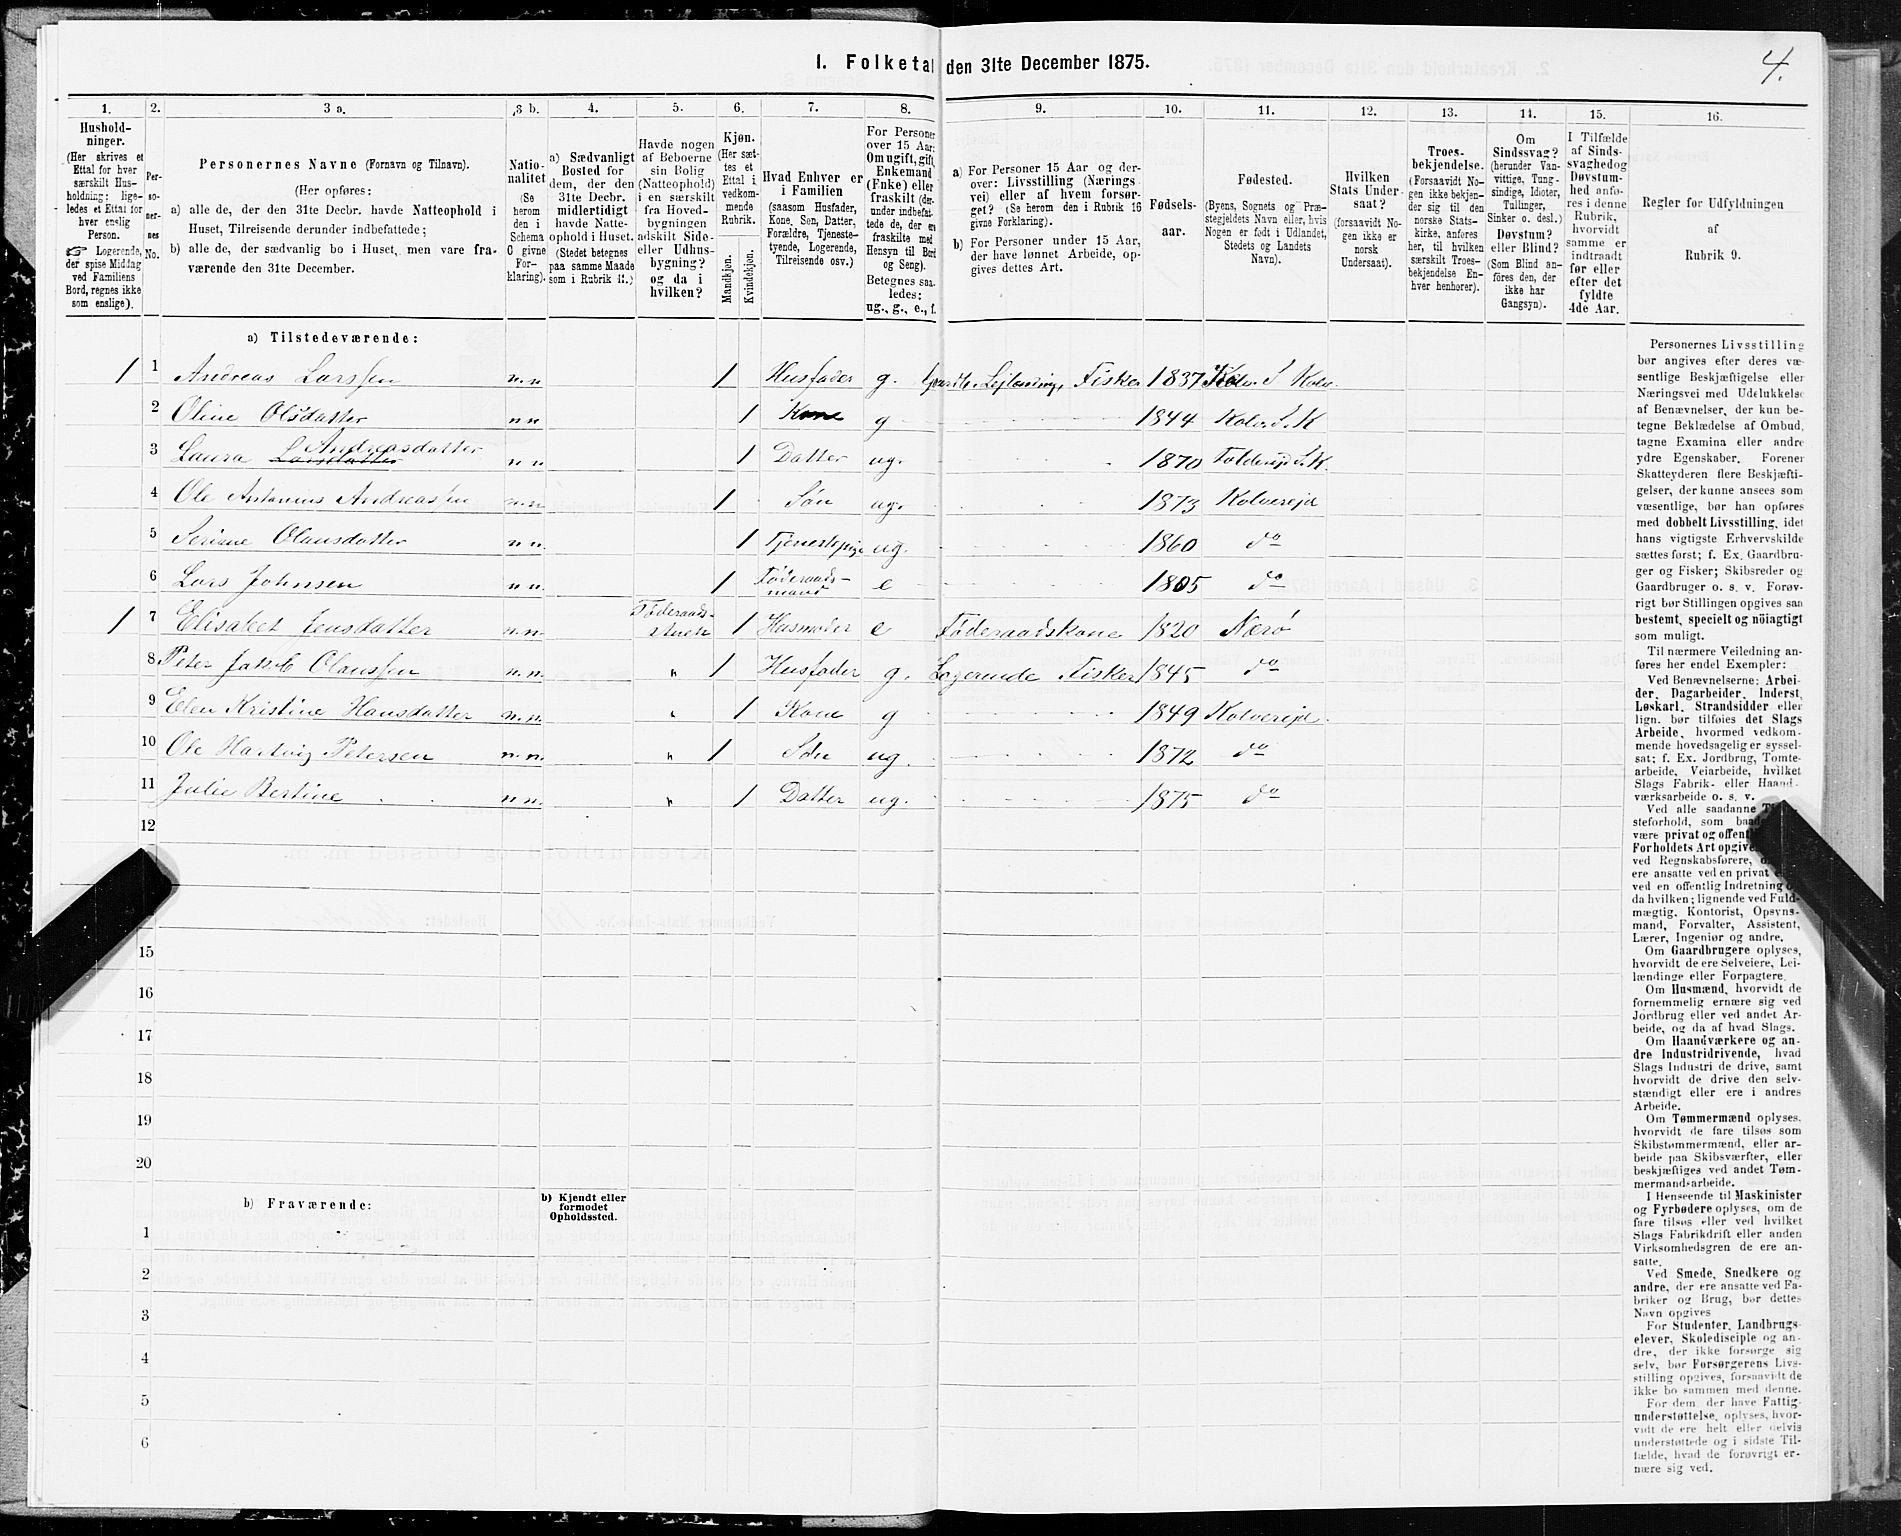 4.
I. Folketal den 31te December 1875.
1. 2. 3 a. 3 b. 4. 5. 6. 7. 8. 9. 10. 11. 12. 13. 14. 15. 16.
Hushold-
ninger.
(Her skrives et
Ettal for hver
særskilt Hus-
holdning; lige-
ledes et Ettal for
hver enslig
Person.
☞ Logerende,
der spise Middag
ved Familiens
Bord, regnes ikke
som enslige).
Per-
so-
ner-
nes
No.
Personernes Navne (Fornavn og Tilnavn).
(Her opføres:
a) alle de, der den 31te Decbr. havde Natteophold i
Huset, Tilreisende derunder indbefattede;
b) alle de, der sædvanlig bo i Huset, men vare fra-
værende den 31te December.
Natio-
nalitet
(Se
herom
den i
Schema
G givne
For-
klaring).
a) Sædvanligt
Bosted for
dem, der den
31te Decbr.
midlertidigt
havde Natte-
ophold i Huset.
(Stedet betegnes
paa samme Maade
som i Rubrik 11.)
Havde nogen
af Beboerne
sin Bolig
(Natteophold)
i en særskilt
fra Hoved-
bygningen
adskilt Side-
eller Udhus-
bygning?
og da i
hvilken?
Kjøn.
(Her sæt-
tes et
Ettal i
vedkom-
mende
Rubrik.
Mandkjøn.
Kvindekjøn.
Hvad Enhver er
i Familien
(saasom Husfader,
Kone, Søn, Datter,
Forældre, Tjeneste-
tyende, Logerende,
Tilreisende osv.)
For Personer
over 15 Aar:
Om ugift, gift,
Enkemand
(Enke) eller
fraskilt (der-
under indbefat-
tede de, der ere
fraskilte med
Hensyn til Bord
og Seng).
Betegnes saa-
ledes:
ug., g., e., f.
a) For Personer 15 Aar og der-
over: Livsstilling (Nærings-
vei) eller af hvem forsør-
get? (Se herom den i Rubrik 16
givne Forklaring).
b) For Personer under 15 Aar,
der have lønnet Arbeide, op-
gives dettes Art.
Fødsels-
aar.
Fødested.
(Byens, Sognets og Præ-
stegjeldets Navn eller, hvis
Nogen er født i Udlandet,
Stedets og Landets
Navn).
Hvilken
Stats Under-
saat?
(forsaavidt No-
gen ikke er
norsk
Undersaat).
Troes-
bekjendelse.
(Forsaavidt No-
gen ikke bekjen-
der sig til den
norske Stats-
kirke, anføres
her, til hvilken
særskilt Troes-
bekjendelse En-
hver henhører).
Om
Sindssvag?
(herunder Van-
vittige, Tung-
sindige, Idioter,
Tullinger,
Sinker o. desl.)
Døvstum?
eller Blind?
(Som Blind an-
føres den, der
ikke har
Gangsyn).
I Tilfælde
af Sinds-
svaghed og
Døvstum-
hed anfø-
res i denne
Rubrik,
hvorvidt
samme er
indtraadt
før eller
efter det
fyldte
4de Aar.
Regler for Udfyldningen
af
Rubrik 9.
a) Tilstedeværende:
1 1 Andreas Larssen n.n 1 Husfader g. Lejlænding, Fisker 1837 Kolv. S Kolv.
2 Oline Olsdatter n n 1 Kone g 1844 Kolv. S. K
3 Laura Larsdatter Andreasdatter n n. 1 Datter ug. 1870 Folderejd S. K.
4 Ole Antonius Andreassen n.n. 1 Søn ug. 1873 Kolverejd
5 Serine Olausdatter n n. 1 Tjenestepige ug. 1860 do
6 Lars Johnsen n n. 1 Føderaads-
mand e 1805 do
1 7 Elisabet Jensdatter n.n. Føderaads-
stuen 1 Husmoder e Føderaadskone 1820 Nærø
8 Peter Jakob Olaussen n.n. " 1 Husfader g. Logerende Fisker 1845 do
9 Elen Kristine Hansdatter n.n. " 1 Kone g 1849 Kolverejd.
10 Ole Hartvig Petersen n.n. " 1 Søn ug. 1872 do
11 Julie Bertine n n. " 1 Datter ug. 1875 do
12
15
16
17
18
19
20
b) Fraværende:
b) Kjendt eller
formodet
Opholdssted.
1
2
3
4
5
6
Personernes Livsstilling
bør angives efter deres væ-
sentlige Beskjæftigelse eller
Næringsvei med Udelukkelse
af Benævnelser, der kun be-
tegne Beklædelse af Ombud,
tagne Examina eller andre
ydre Egenskaber. Forener
Skatteyderen flere Beskjæfti-
gelser, der kunne ansees som
væsentlige, bør han opføres
med dobbelt Livsstilling, idet
hans vigtigste Erhvervskilde
sættes først; f. Ex. Gaardbru-
ger og Fisker; Skibsreder og
Gaardbruger o. s. v. Forøv-
rigt bør Stillingen opgives saa
bestemt, specielt og nöiagtigt
som muligt.
Til nærmere Veiledning an-
føres her endel Exempler:
Ved Benævnelserne: Arbei-
der, Dagarbeider, Inderst,
Løskarl, Strandsidder eller
lign. bør tilføies det Slags
Arbeide, hvormed vedkom-
mende hovedsagelig er syssel-
sat; f. Ex. Jordbrug, Tomte-
arbeide, Veiarbeide, hvilket
Slags Fabrik- eller Haand-
værksarbeide o. s. v.
Ved alle saadanne
steforhold, som
være privat og
Forholdets Art
ved Regnskabsførere,
ere ansatte ved en privat
ved en offentlig Indretning
da hvilken; lignende ved Fuld-
mægtig, Kontorist, Opsyns-
mand, Forvalter, Assistent,
Lærer, Ingeniør og andre.
Om Gaardbrugere oplyses,
hvorvidt de ere Selveiere, Lei-
lændinge eller Forpagtere.
Om Husmænd, hvorvidt de
fornemmelig ernære sig ved
Jordbrug eller ved andet Ar-
beide, og da af hvad Slags.
Om Haandværkere og an-
dre Industridrivende, hvad
Slags Industri de drive, samt
hvorvidt de drive den selv-
stændigt eller ere i andres
Arbeide.
Om Tømmermænd oplyses,
hvorvidt de fare tilsøs som
Skibstømmermænd, eller ar-
beide paa Skibsværfter, eller
beskjæftiges ved andet Tøm-
mermandsarbeide.
I Henseende til Maskinister
og Fyrbødere oplyses, om de
fare tilsøs eller ved hvilket
Slags Fabrikdrift eller anden
Virksomhedsgren de ere an-
satte.
Ved Smede, Snedkere og
andre, der ere ansatte ved Fa-
briker og Brug, bør dettes
Navn opgives
For Studenter, Landbrugs-
elever, Skoledisciple og an-
dre, der ikke forsørge sig
selv, bør Forsørgerens Livs-
stilling opgives, forsaavidt de
ikke bo sammen med denne.
For dem, der have Fattig-
understøttelse, oplyses, hvor-
vidt de ere helt eller delvis
understøttede og i sidste Til-
fælde, hvad de forøvrigt er-
nære sig ved.